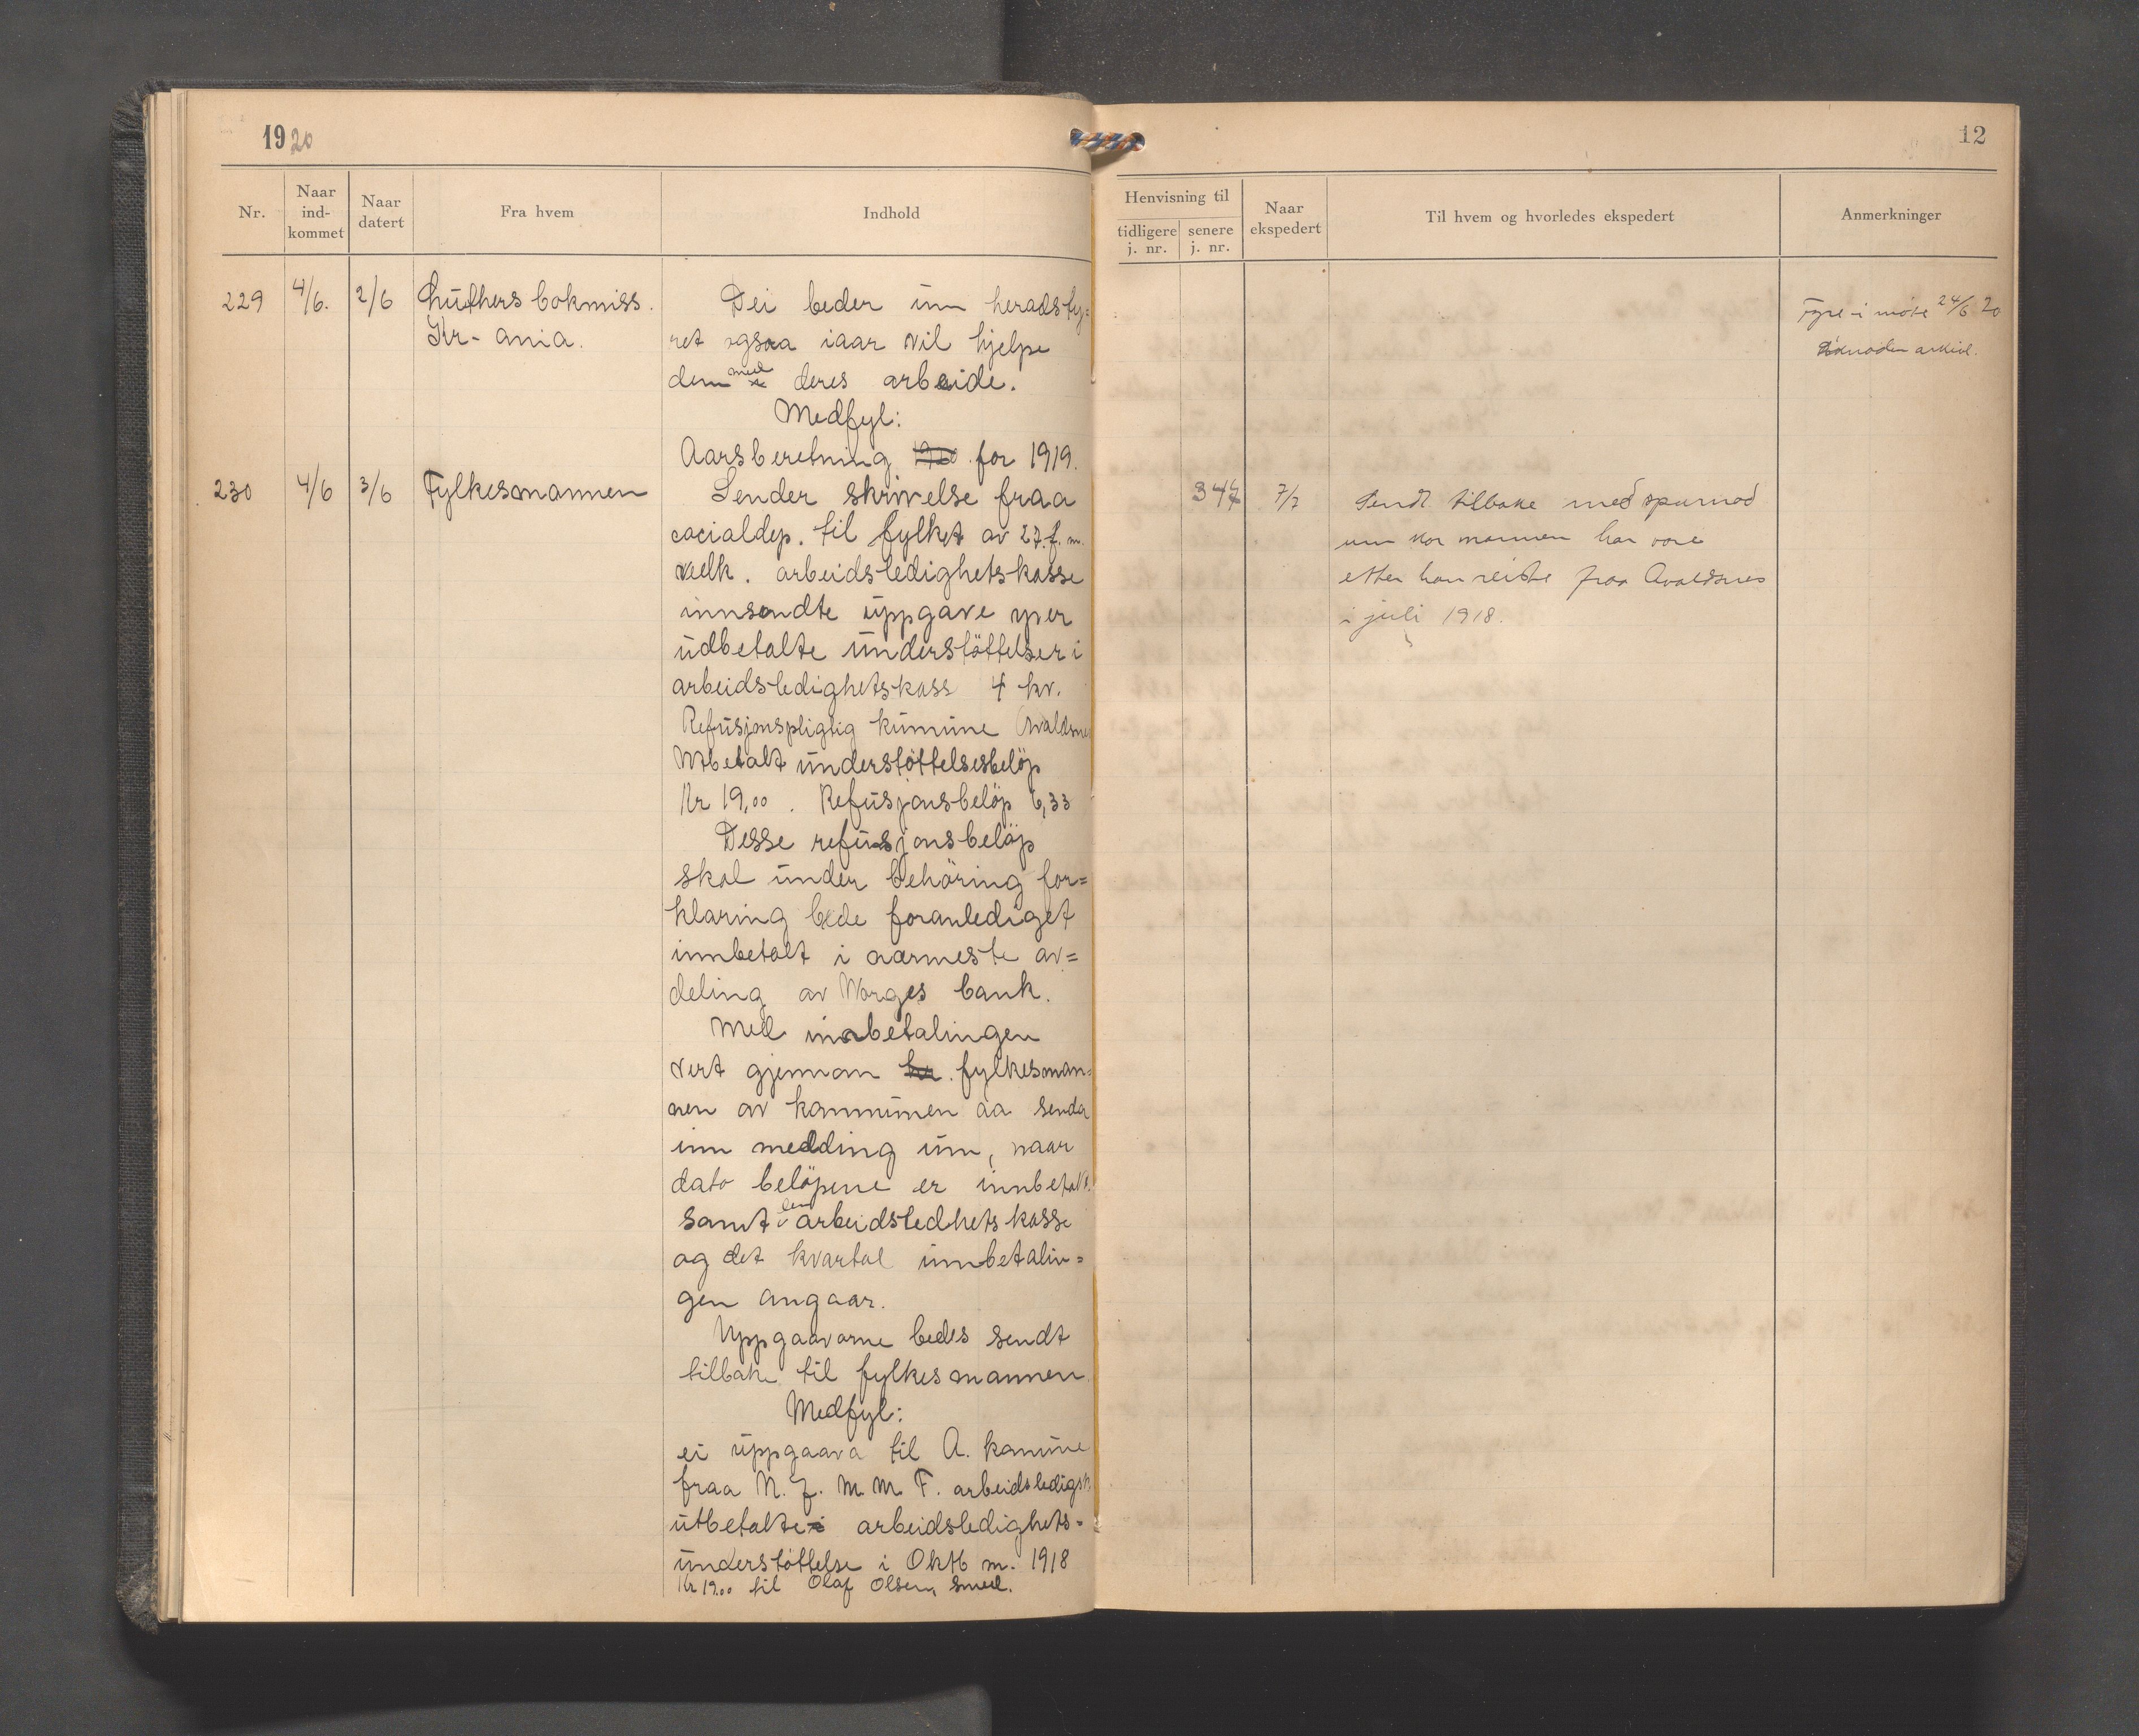 1920
Nr.
Naar ind-kommet
Naar datert
Fra hvem
Indhold
229 4/6. 2/6 Luthers bokmiss.
Kr-ania.
Dei beder um heradsty=
ret ogsaa iaar vil hjelpe
dem med deres arbeide.
Medfyl:
Aarsberetning 1920 for 1919.
230 4/6 3/6 Fylkesmannen
Sender skrivelse fraa
socialdep. til fylket av 27. f. m.
vedk. arbeidsledighetskasse
innsendte uppgave yver
udbetalte understöttelser i
arbeidsledighetskass 4 kv.
Refusjonspligtig kumune Avaldsnes
Utbetalt understöttelsesbelöp
Kr 19,00. Refusjonsbelöp 6,33
Desse refusjonsbelöp
skal under behöring for=
klaring bede foranlediget
innbetalt i nærmeste av=
deling av Norges bank.
Med innbetalingen
vert gjennom fylkesman=
nen av kommunen aa senda
inn melding um, naar
dato belöpene er innbetalt.
samt den arbeidsledhetskasse
og det kvartal innbetalin=
gen angaar.
Uppgaavarne bedes sendt
tilbake til fylkesmannen.
Medfyl:
ei uppgaava til A. komune
fraa N. J. M. M. F. arbeidsledigsk.
utbetalte arbeidsledighets=
understöttelse i Oktb m. 1918
Kr 19.00 til Olaf Olsen, smed.
12
Henvisning til
tidligere j. nr.
senere j. nr.
Naar ekspedert
Til hvem og hvorledes ekspedert
Anmerkninger
Fyre i møte 24/6 20
arkivl.
347 7/7 Sendt tilbake med spurnad
um kor mannen har vore
etter han reiste fraa Avaldsnes
i juli 1918.